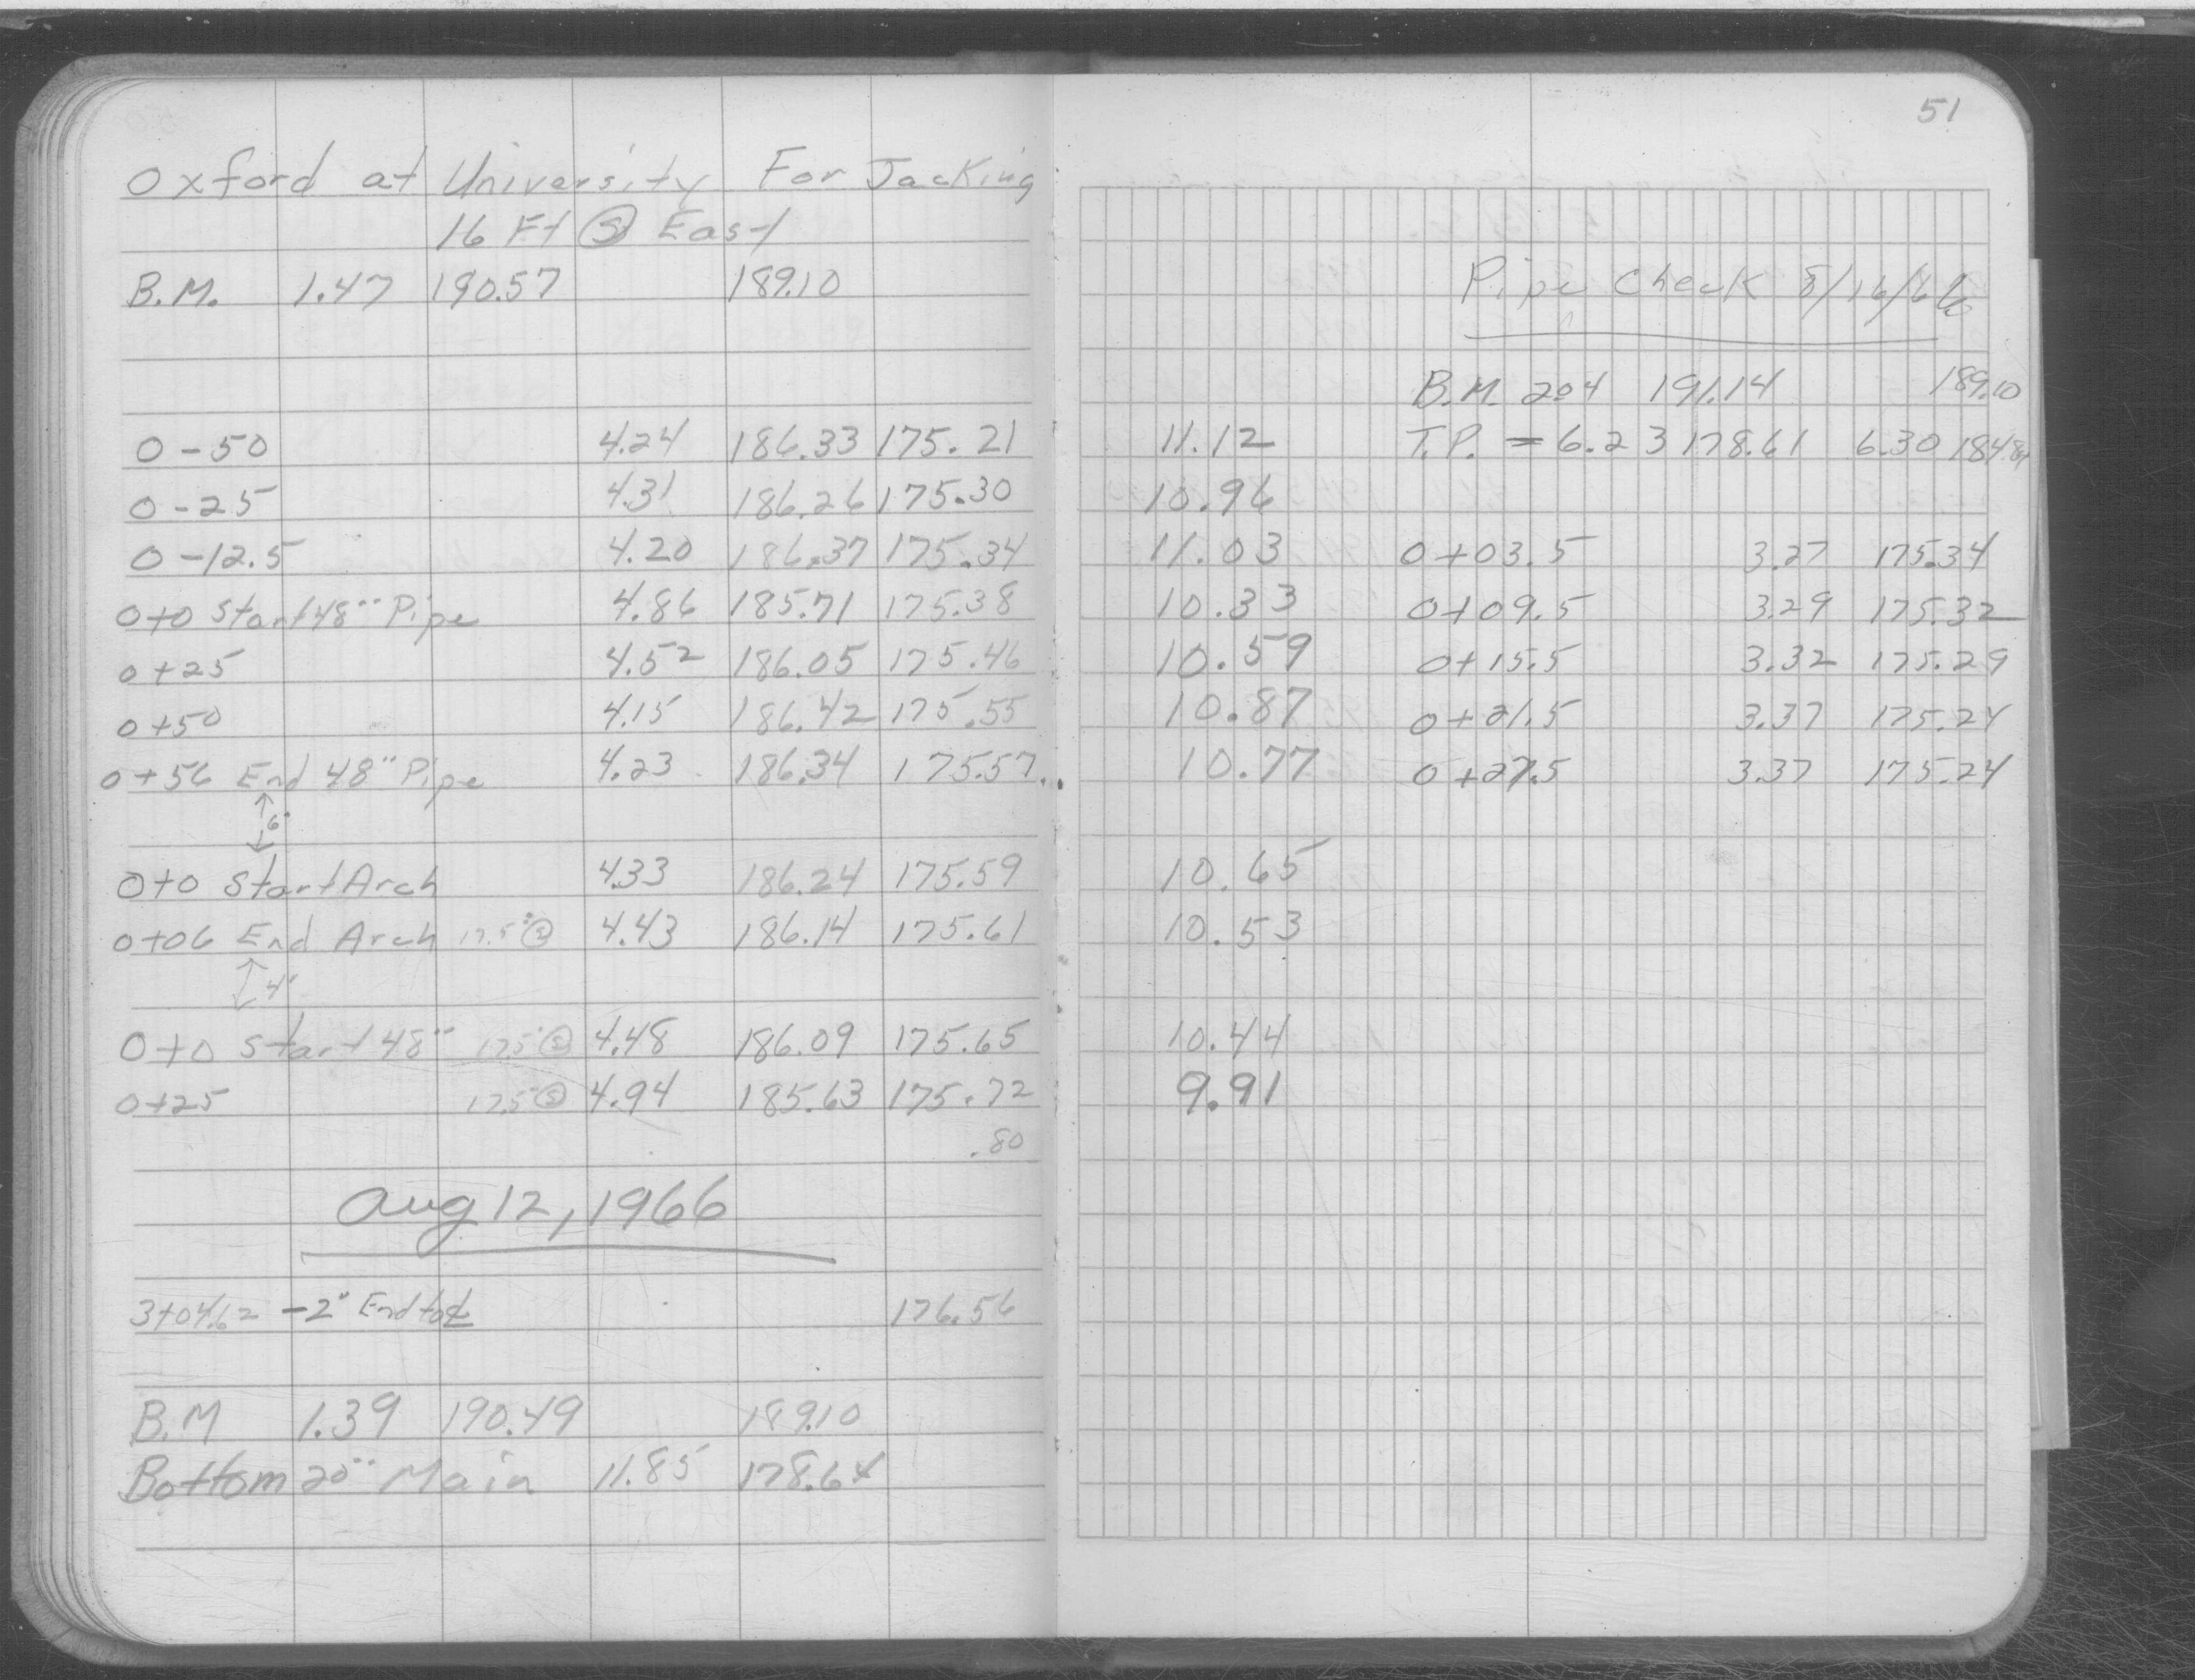 Oxford at University For Jacking
16 Ft Ⓢ East
B.M. 1.47 190.57 189.10
0-50 4.24 186.33 175.21
0-25 4.31 186.26 175.30
0-12.5 4.20 186.37 175.34
0+0 Start 48" Pipe 4.86 185.71 175.38
0+25 4.52 186.05 175.46
0+50 4.15 186.42 175.55
0+56 End 48" Pipe 4.23 186.34 175.57
6'
0+0 Start Arch 4.33 186.24 175.59
0+06 End Arch 17.5' Ⓢ 4.43 186.14 175.61
4'
0+0 Start 48" 17.5' Ⓢ 4.48 186.09 175.65
0+25 17.5' Ⓢ 4.94 185.63 175.72
.80
Aug 12, 1966
3+04.62 -2" End to ℄ 176.56
B.M 1.39 190.49 189.10
Bottom 20" Main 11.85 178.64
51
Pipe Check 8/16/66
B.M. 2.04 191.14 189.10
11.12 T.P. -6.23 178.61 6.30 184.84
10.96
11.03 0+03.5 3.27 175.34
10.33 0+09.5 3.29 175.32
10.59 0+15.5 3.32 175.29
10.87 0+21.5 3.37 175.24
10.77 0+27.5 3.37 175.24
10.65
10.53
10.44
9.91